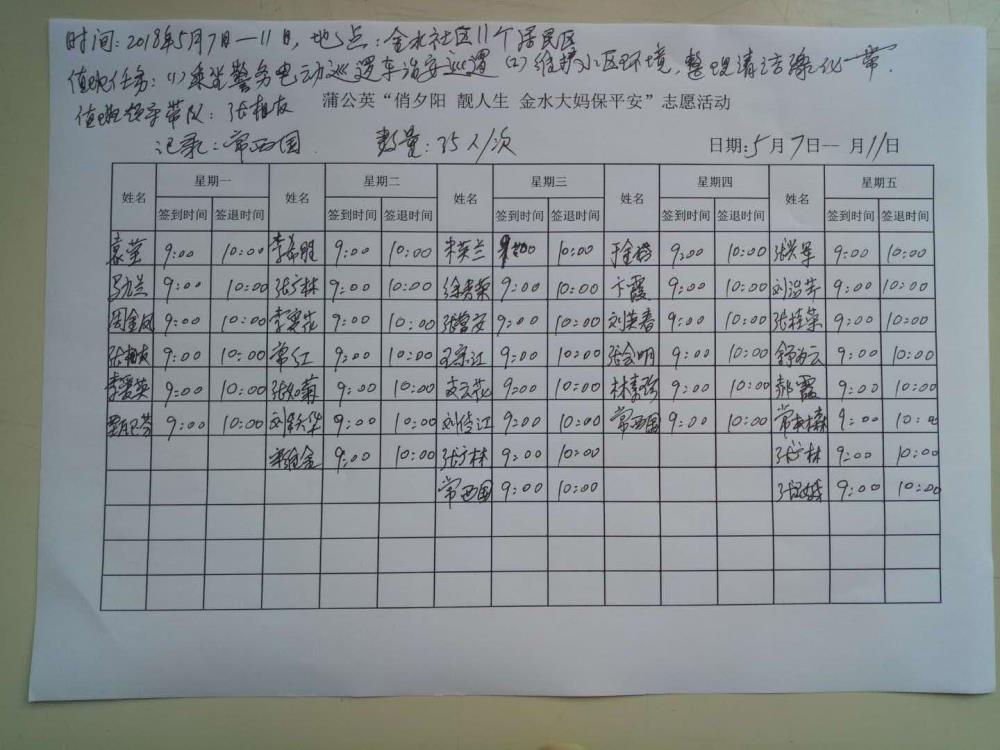 时间:2018年5月7日—11日,地点:金水社区11个居民区
值班任务:(1)乘坐警务电动巡逻车治安巡逻 (2)维护小区环境,整理清洁绿化一带.
蒲公英“俏夕阳 靓人生 金水大妈保平安”志愿活动
值班领导带队:张相友
记录:常西国 数量:35人/次 日期:5月7日— 月11日
姓名 星期一 姓名 星期二 姓名 星期三 姓名 星期四 姓名 星期五
签到时间 签退时间 签到时间 签退时间 签到时间 签退时间 签到时间 签退时间 签到时间 签退时间
9:00 10:00 9:00 10:00 9:00 10:00 9:00 10:00 9:00 10:00
9:00 10:00 张广林 9:00 10:00 徐秀荣 9:00 10:00 卞霞 9:00 10:00 9:00 10:00
周金凤 9:00 10:00 李翠花 9:00 10:00 9:00 10:00 刘英春 9:00 10:00 张桂荣 9:00 10:00
张相友 9:00 10:00 常红 9:00 10:00 9:00 10:00 张会明 9:00 10:00 9:00 10:00
李爱英 9:00 10:00 张如菊 9:00 10:00 9:00 10:00 林素珍 9:00 10:00 郝霞 9:00 10:00
9:00 10:00 9:00 10:00 9:00 10:00 常西国 9:00 10:00 9:00 10:00
9:00 10:00 张广林 9:00 10:00 张广林 9:00 10:00
常西国 9:00 10:00 9:00 10:00